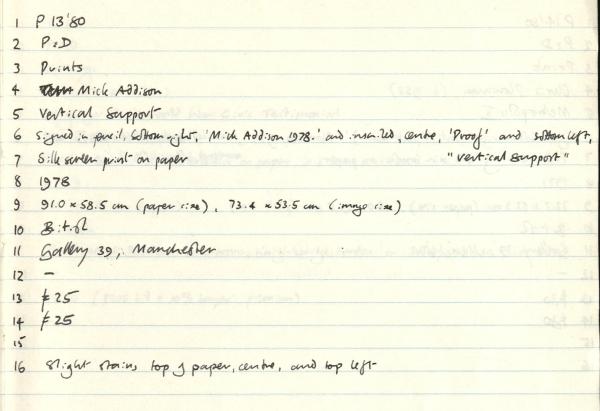 1 P 13'80
2 P&D
3 Prints
4 Mick Addison
5 Vertical Support
6 Signed in pencil, bottom right, 'Mick Addison 1978.' and inscribed, centre, 'Proof' and bottom left,
7 Silk screen print on paper "Vertical Support"
8 1978
9 91.0 x 58.5 cm (paper size), 73.4 x 53.5 cm (image size)
10 British
11 Gallery 39, Manchester
12 -
13 £25
14 £25
15
16 Slight stains, top of paper, centre, and top left